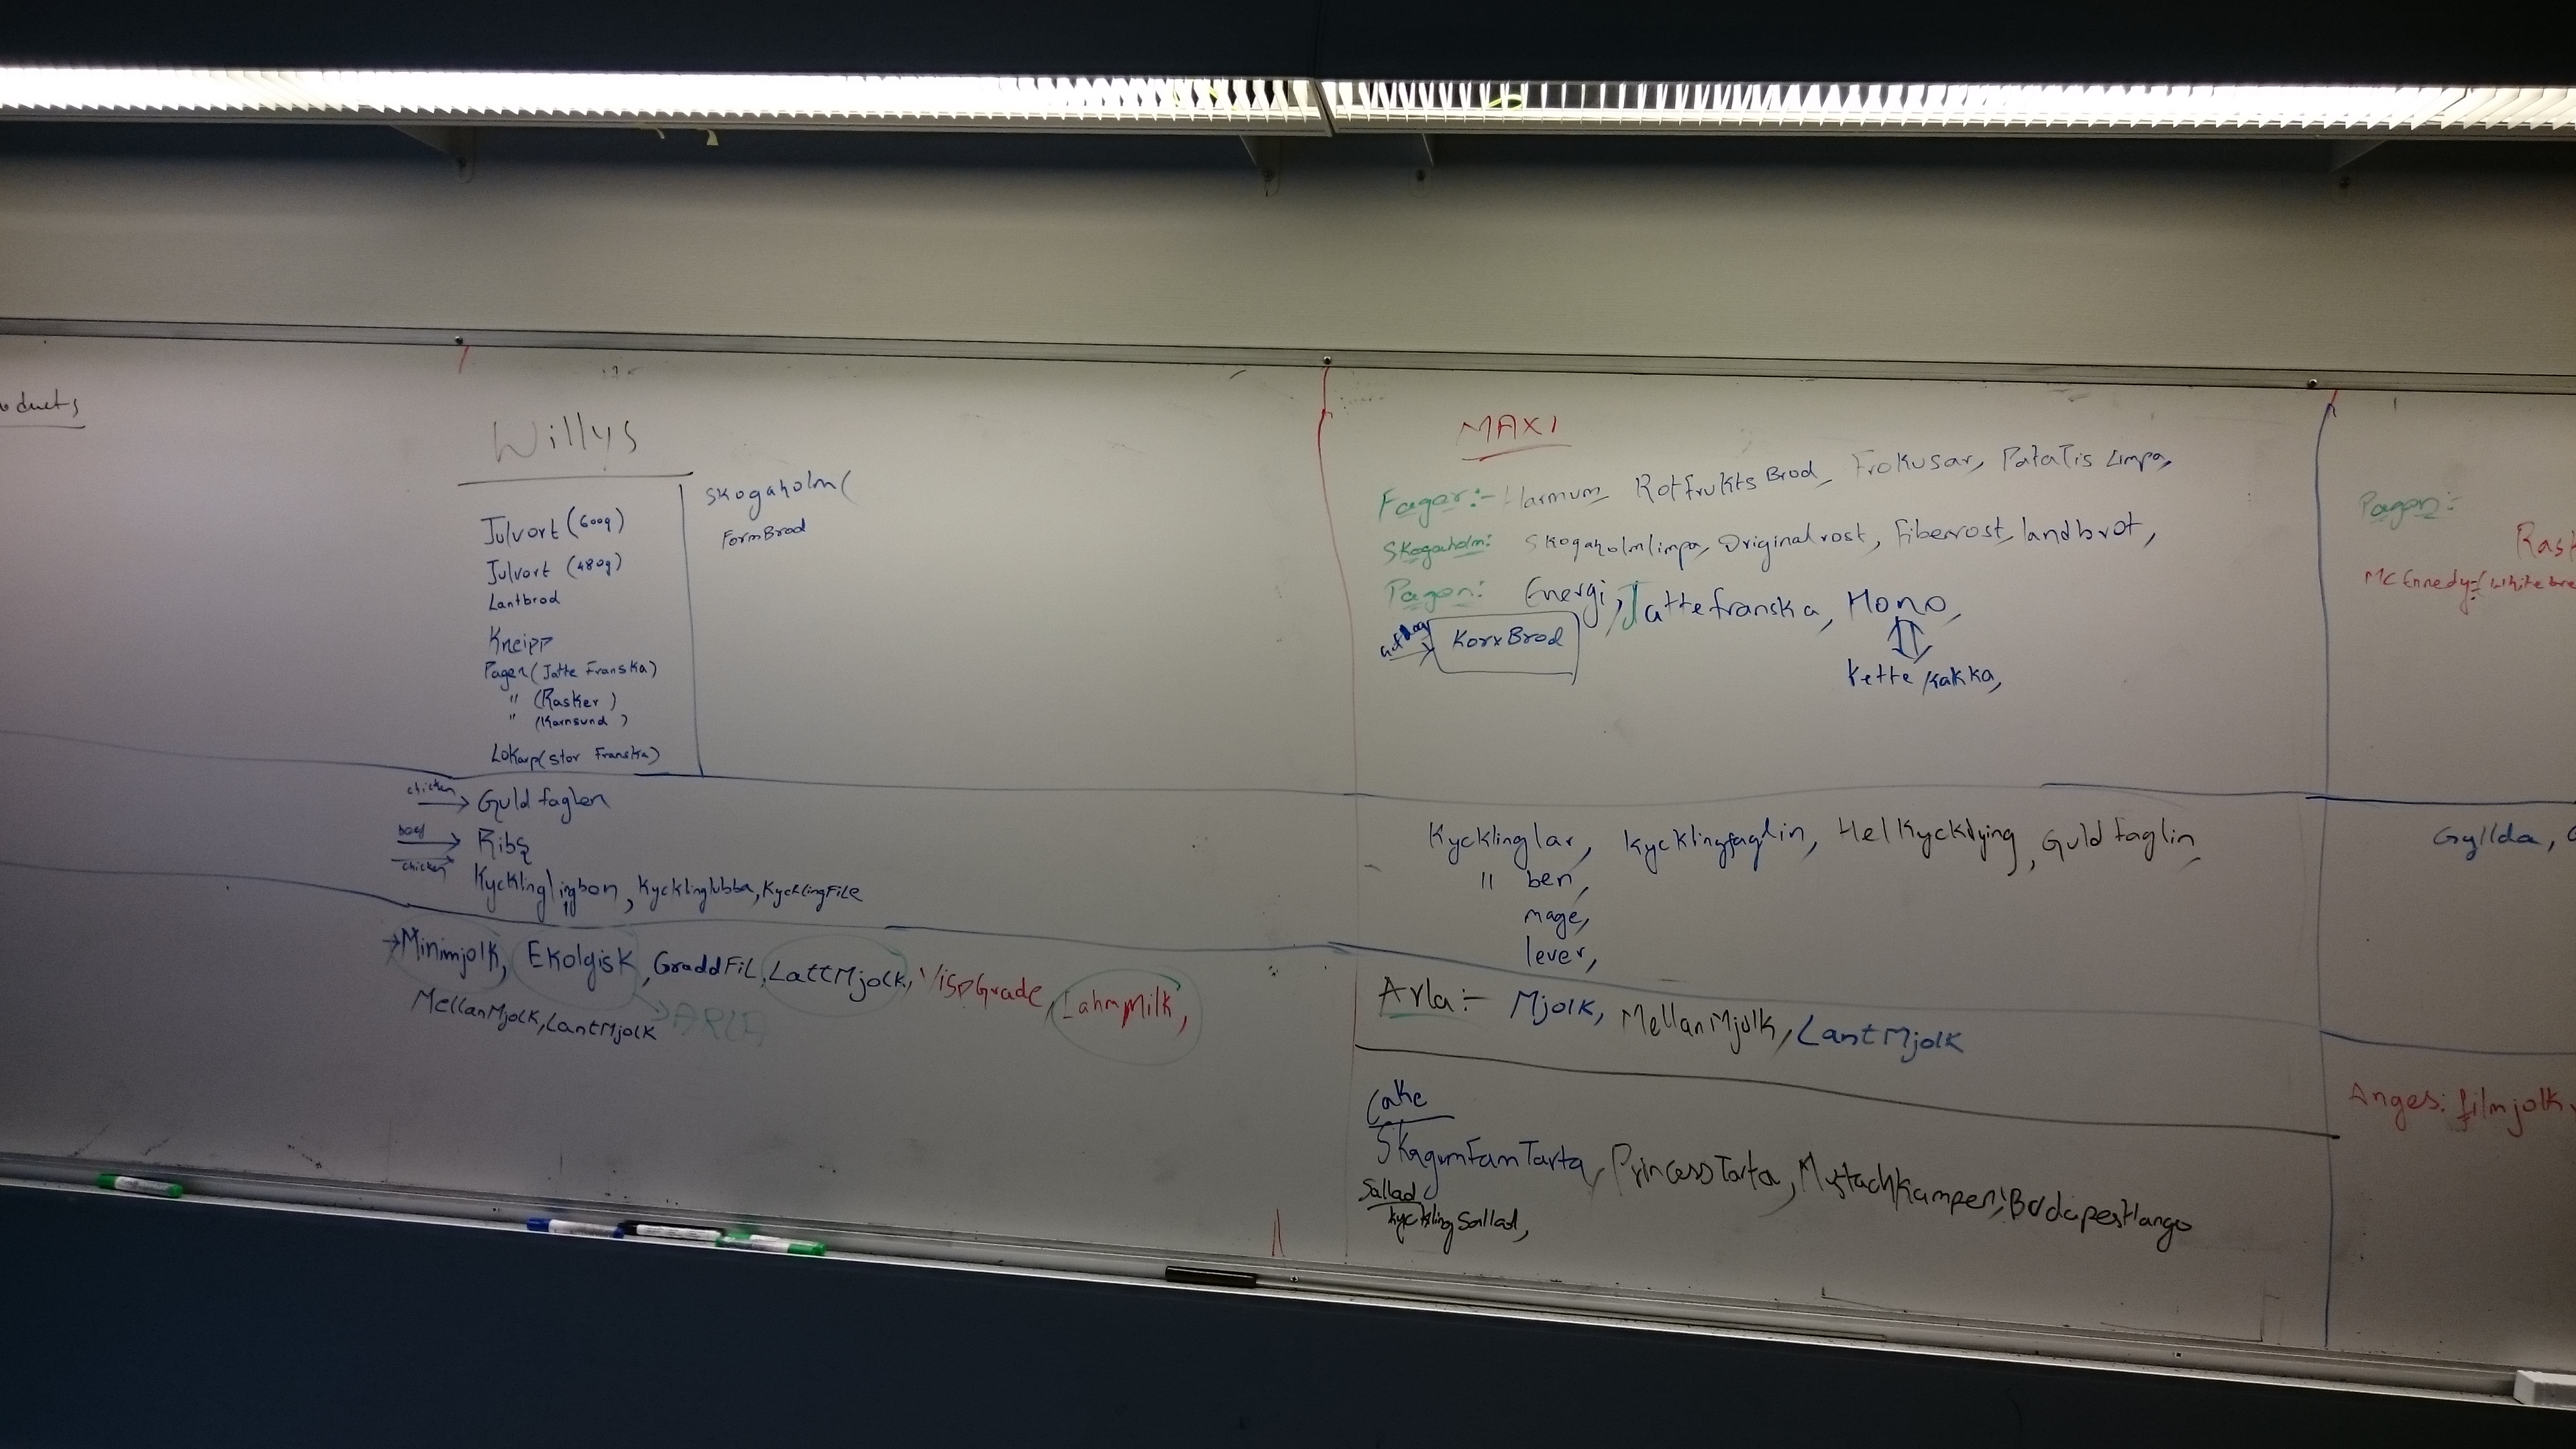 oducts
Willys
Julvort (600g)
Julvort (480g)
Lantbrod
Kneipp
Pagen (Jatte Franska)
" (Rasker)
" (Karnsund)
Lokarp (Stor Franska)
Skogaholm (
FormBrod
chicken → Guld faglen
beef → Ribs
chicken → Kycklinglingbon, Kycklinglubba, KycklingFile
→ Minimjolk, Ekolgisk, GraddFil, LattMjolk, VispGrade, LahmMilk,
MellanMjolk, LantMjolk → ARLA
MAXI
Fager:- Harmum, RotfruktsBrod, Frokusar, Patatis Limpa,
Skogaholm: Skogaholmlimpa, Originalrost, Fiberrost, landbrot,
Pagen: Energi, Jattefranska, Mono,
KorxBrod
Kette kakka,
Kycklinglar, Kycklingfaglin, HelKycklying, Guld faglin,
" ben,
mage,
lever,
Arla:- Mjolk, MellanMjolk, LantMjolk
Cake
SkagumFamTarta, PrincessTarta, MustachKampen, BudapestLango
Sallad
Kyckling Sallad,
Pagen:-
Rask
MC Ennedy:- (white bre
Gyllda, G
Anges: filmjolk,